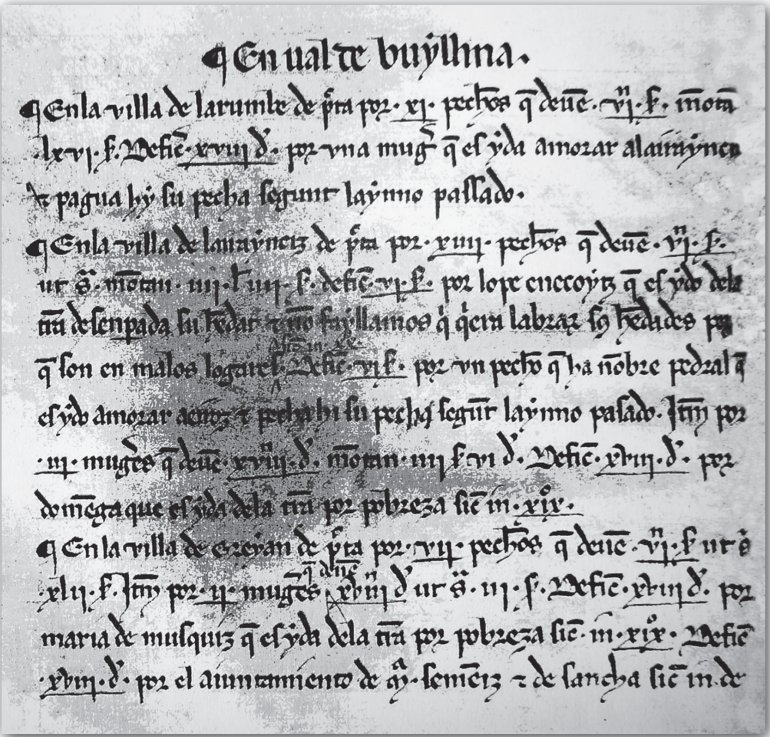 ¶ En ual de buyllina.
¶ En la villa de larumbe de p̃ta por · xi · pechos q̃ deuẽ · vj · s̃ · mõtã
· lxvi · s̃. Defiẽ · xviii d̃ · por vna mug̃ q̃ es yda amorar
⁊ pagua hy su pecha segunt laynno passado.
¶ En la villa de de p̃ta por · xiiii · pechos q̃ deuẽ · vj · s̃ ·
ut s̃ · mõtan · iiii · s̃ · defiẽ · vi · s̃ · por lope enecoytz q̃ es ydo dela
tr̃a su hedat ⁊ no fayllamos q̃ q̃era labrar hedades
q̃ son en malos logares Defiẽ · vi s̃ · por vn pecho q̃ ha nõbre
es ydo amorar ⁊ pecha hi su pecha segũt laynno pasado. Itm̃ por
· iii · mug̃es q̃ deuẽ · xviii · d̃ · mõtan · iiii s̃ vi d̃ · Defiẽ · xviii · d̃ · por
domẽga que es yda dela tr̃a por pobreza siẽ in · xix ·
¶ En la villa de de p̃ta por · vii · pechos q̃ deuẽ · vj · s̃ ut s̃
· xlii · s̃ · Itm̃ por · ii · mug̃es q̃ deuẽ xviii d̃ ut s̃ · iii · s̃ · Defiẽ · xviii d̃ · por
maria de musquiz q̃ es yda dela tr̃a por pobreza siẽ · in · xix · Defiẽ
· xviii · d̃ · por el aiuntamiento de semeñiz ⁊ de sancha siẽ in · de